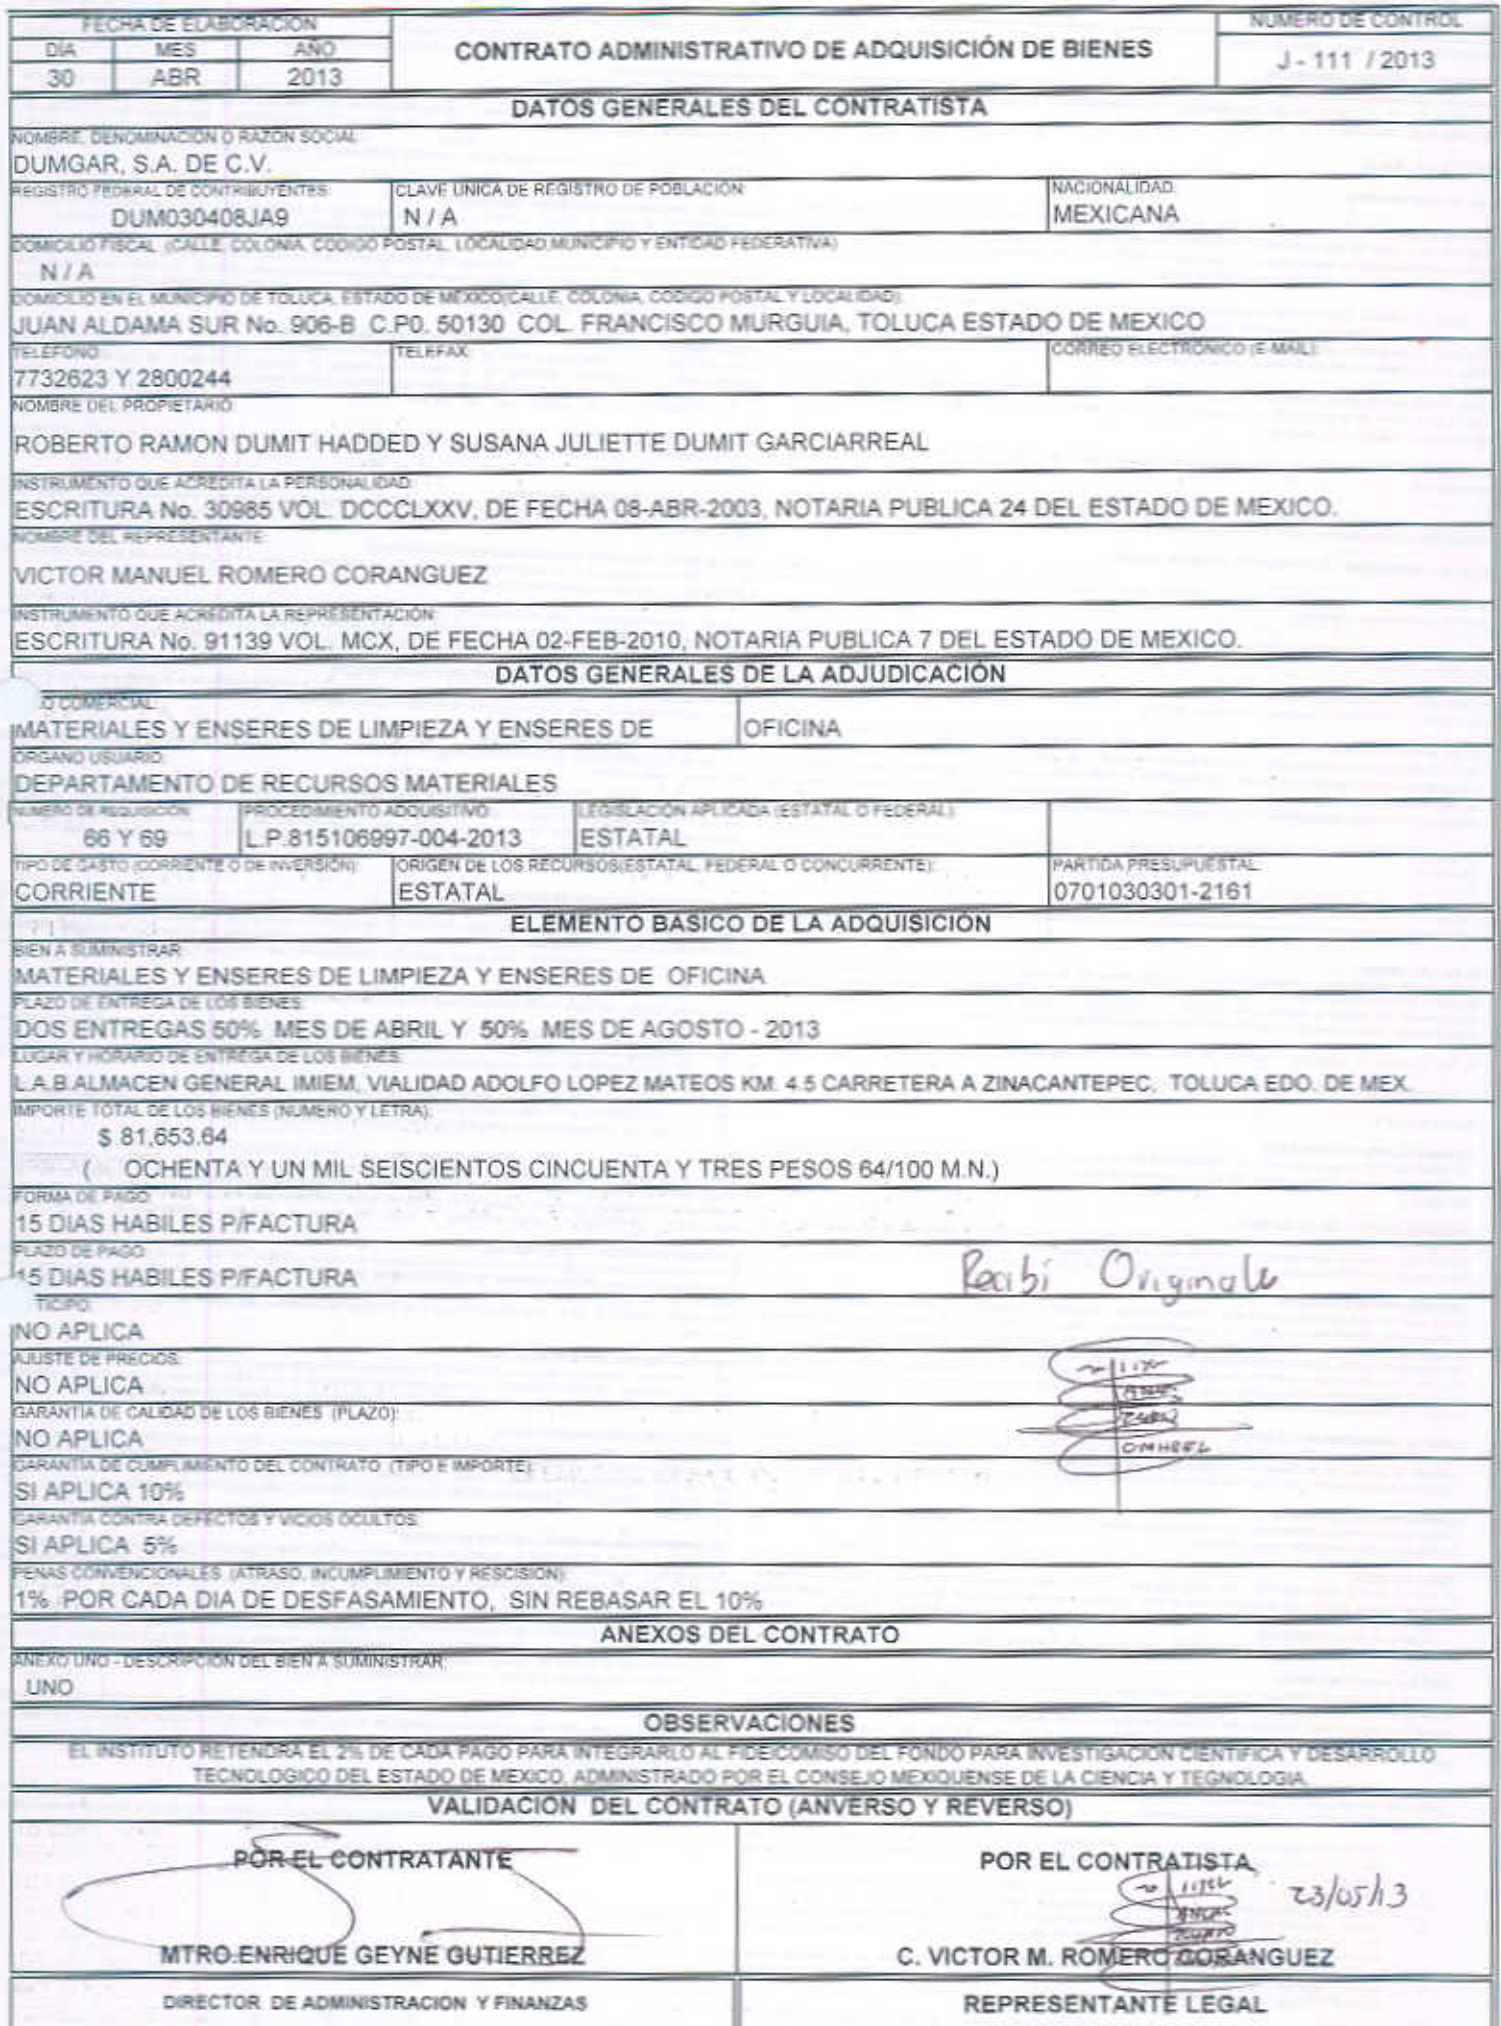 FECHA DE ELABORACION
NUMERO DE CONTROL
DÍA MES AÑO
CONTRATO ADMINISTRATIVO DE ADQUISICIÓN DE BIENES
J - 111 / 2013
30 ABR 2013
DATOS GENERALES DEL CONTRATISTA
NOMBRE, DENOMINACION O RAZON SOCIAL
DUMGAR, S.A. DE C.V.
REGISTRO FEDERAL DE CONTRIBUYENTES: CLAVE UNICA DE REGISTRO DE POBLACIÓN: NACIONALIDAD:
DUM030408JA9 N / A MEXICANA
DOMICILIO FISCAL (CALLE, COLONIA, CODIGO POSTAL, LOCALIDAD, MUNICIPIO Y ENTIDAD FEDERATIVA)
N / A
DOMICILIO EN EL MUNICIPIO DE TOLUCA, ESTADO DE MEXICO(CALLE, COLONIA, CODIGO POSTAL Y LOCALIDAD):
JUAN ALDAMA SUR No. 906-B C.P0. 50130 COL. FRANCISCO MURGUIA, TOLUCA ESTADO DE MEXICO
TELEFONO: TELEFAX: CORREO ELECTRONICO (E-MAIL):
7732623 Y 2800244
NOMBRE DEL PROPIETARIO:
ROBERTO RAMON DUMIT HADDED Y SUSANA JULIETTE DUMIT GARCIARREAL
INSTRUMENTO QUE ACREDITA LA PERSONALIDAD:
ESCRITURA No. 30985 VOL. DCCCLXXV, DE FECHA 08-ABR-2003, NOTARIA PUBLICA 24 DEL ESTADO DE MEXICO.
NOMBRE DEL REPRESENTANTE:
VICTOR MANUEL ROMERO CORANGUEZ
INSTRUMENTO QUE ACREDITA LA REPRESENTACIÓN:
ESCRITURA No. 91139 VOL. MCX, DE FECHA 02-FEB-2010, NOTARIA PUBLICA 7 DEL ESTADO DE MEXICO.
DATOS GENERALES DE LA ADJUDICACIÓN
O COMERCIAL:
MATERIALES Y ENSERES DE LIMPIEZA Y ENSERES DE OFICINA
ORGANO USUARIO:
DEPARTAMENTO DE RECURSOS MATERIALES
NUMERO DE REQUISICION PROCEDIMIENTO ADQUISITIVO: LEGISLACIÓN APLICADA (ESTATAL O FEDERAL):
66 Y 69 L.P.815106997-004-2013 ESTATAL
TIPO DE GASTO (CORRIENTE O DE INVERSIÓN): ORIGEN DE LOS RECURSOS(ESTATAL, FEDERAL O CONCURRENTE): PARTIDA PRESUPUESTAL:
CORRIENTE ESTATAL 0701030301-2161
ELEMENTO BASICO DE LA ADQUISICIÓN
BIEN A SUMINISTRAR:
MATERIALES Y ENSERES DE LIMPIEZA Y ENSERES DE OFICINA
PLAZO DE ENTREGA DE LOS BIENES:
DOS ENTREGAS 50% MES DE ABRIL Y 50% MES DE AGOSTO - 2013
LUGAR Y HORARIO DE ENTREGA DE LOS BIENES:
L.A.B.ALMACEN GENERAL IMIEM, VIALIDAD ADOLFO LOPEZ MATEOS KM. 4.5 CARRETERA A ZINACANTEPEC, TOLUCA EDO. DE MEX.
IMPORTE TOTAL DE LOS BIENES (NUMERO Y LETRA):
$ 81,653.64
( OCHENTA Y UN MIL SEISCIENTOS CINCUENTA Y TRES PESOS 64/100 M.N.)
FORMA DE PAGO:
15 DIAS HABILES P/FACTURA
PLAZO DE PAGO:
15 DIAS HABILES P/FACTURA
Recibi Originale
TICIPO:
NO APLICA
AJUSTE DE PRECIOS:
NO APLICA
GARANTÍA DE CALIDAD DE LOS BIENES (PLAZO):
NO APLICA
GARANTÍA DE CUMPLIMIENTO DEL CONTRATO (TIPO E IMPORTE):
SI APLICA 10%
GARANTIA CONTRA DEFECTOS Y VICIOS OCULTOS:
SI APLICA 5%
PENAS CONVENCIONALES (ATRASO, INCUMPLIMIENTO Y RESCISION):
1% POR CADA DIA DE DESFASAMIENTO, SIN REBASAR EL 10%
ANEXOS DEL CONTRATO
ANEXO UNO - DESCRIPCION DEL BIEN A SUMINISTRAR:
UNO
OBSERVACIONES
EL INSTITUTO RETENDRA EL 2% DE CADA PAGO PARA INTEGRARLO AL FIDEICOMISO DEL FONDO PARA INVESTIGACION CIENTIFICA Y DESARROLLO
TECNOLOGICO DEL ESTADO DE MEXICO, ADMINISTRADO POR EL CONSEJO MEXIQUENSE DE LA CIENCIA Y TEGNOLOGIA.
VALIDACION DEL CONTRATO (ANVERSO Y REVERSO)
POR EL CONTRATANTE POR EL CONTRATISTA
23/05/13
MTRO.ENRIQUE GEYNE GUTIERREZ C. VICTOR M. ROMERO CORANGUEZ
DIRECTOR DE ADMINISTRACION Y FINANZAS REPRESENTANTE LEGAL